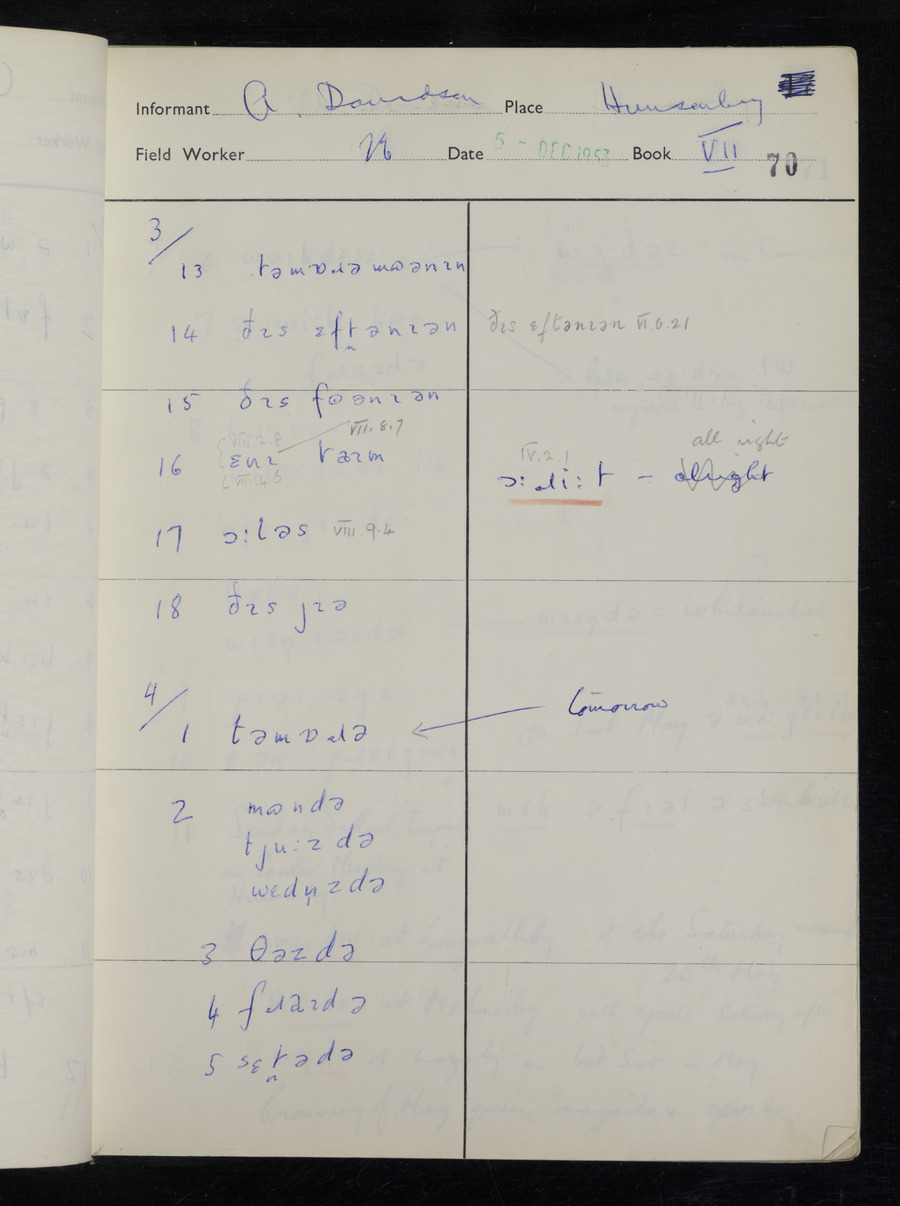 Informant A. Davidson Place Hunsonby
Field Worker Date 5 - DEC 1953 Book VII 70
3/
13 təmɒɹə mɷənɪn
14 ðɪs ɛft̪ənɪən ðɪs ɛftənɪən VI.6.21
15 ðɪs fɷənɪən
VIII.2.8 VII.8.7
16 ɛnɪ taɪm
VIII.4.6
IV.2.1 all right
ɔ:ɹi:t - alright
17 ɔ:ləs VIII.9.4
18 ðɪs jɪə
4/
1 təmɒɹə tomorrow
2 mɷndə
tju:zdə
wɛdn̩zdə
3 θəzdə
4 fɹaɪdə
5 sɛt̪ədə